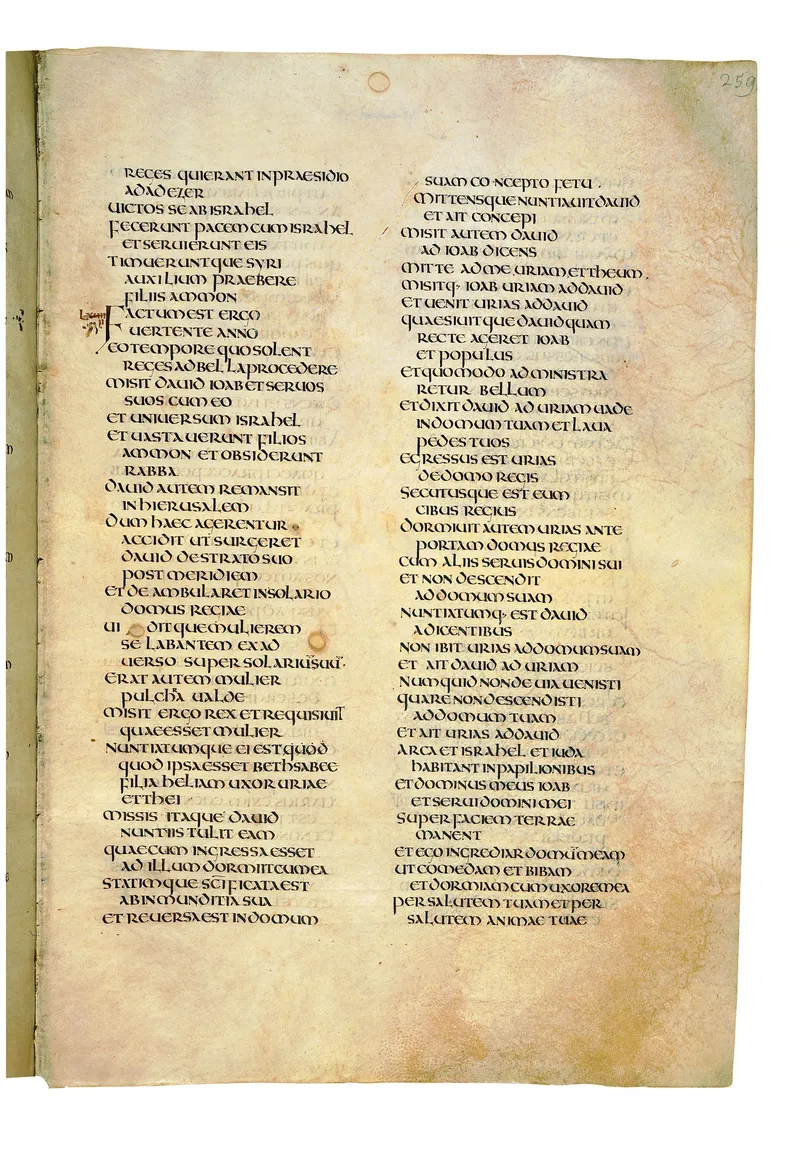 259
REGES QUI ERANT IN PRAESIDIO
ADADEZER
UICTOS SE AB ISRAHEL
FECERUNT PACEM CUM ISRAHEL
ET SERUIERUNT EIS
TIMUERUNTQUE SYRI
AUXILIUM PRAEBERE
FILIIS AMMON
FACTUM EST ERGO
UERTENTE ANNO
EO TEMPORE QUO SOLENT
REGES AD BELLA PROCEDERE
MISIT DAUID IOAB ET SERUOS
SUOS CUM EO
ET UNIUERSUM ISRAHEL
ET UASTAUERUNT FILIOS
AMMON ET OBSIDERUNT
RABBA
DAUID AUTEM REMANSIT
IN HIERUSALEM
DUM HAEC AGERENTUR
ACCIDIT UT SURGERET
DAUID DE STRATO SUO
POST MERIDIEM
ET DEAMBULARET IN SOLARIO
DOMUS REGIAE
UIDITQUE MULIEREM
SE LABANTEM EX AD
UERSO SUPER SOLARIŪ SUŪ·
ERAT AUTEM MULIER
PULCHRA UALDE
MISIT ERGO REX ET REQUISIUIT
QUAE ESSET MULIER
NUNTIATUMQUE EI EST QUOD
QUOD IPSA ESSET BETHSABEE
FILIA HELIAM UXOR URIAE
ETTHEI
MISSIS ITAQUE DAUID
NUNTIIS TULIT EAM
QUAE CUM INGRESSA ESSET
AD ILLUM DORMIIT CUM EA
STATIMQUE SC̄IFICATA EST
AB INMUNDITIA SUA
ET REUERSA EST IN DOMUM
SUAM CONCEPTO FETU·
MITTENSQUE NUNTIAUIT DAUID
ET AIT CONCEPI
MISIT AUTEM DAUID
AD IOAB DICENS
MITTE AD ME URIAM ETTHEUM·
MISITQ· IOAB URIAM AD DAUID
ET UENIT URIAS AD DAUID
QUAESIUITQUE DAUID QUAM
RECTE AGERET IOAB
ET POPULUS
ET QUOMODO ADMINISTRA
RETUR BELLUM
ET DIXIT DAUID AD URIAM UADE
IN DOMUM TUAM ET LAUA
PEDES TUOS
EGRESSUS EST URIAS
DE DOMO REGIS
SECUTUSQUE EST EUM
CIBUS REGIUS
DORMIUIT AUTEM URIAS ANTE
PORTAM DOMUS REGIAE
CUM ALIIS SERUIS DOMINI SUI
ET NON DESCENDIT
AD DOMUM SUAM
NUNTIATUMQ· EST DAUID
A DICENTIBUS
NON IBIT URIAS AD DOMUM SUAM
ET AIT DAUID AD URIAM
NUMQUID NON DE UIA UENISTI
QUARE NON DESCENDISTI
AD DOMUM TUAM
ET AIT URIAS AD DAUID
ARCA ET ISRAHEL ET IUDA
HABITANT IN PAPILIONIBUS
ET DOMINUS MEUS IOAB
ET SERUI DOMINI MEI
SUPER FACIEM TERRAE
MANENT
ET EGO INGREDIAR DOMŪ MEAM
UT COMEDAM ET BIBAM
ET DORMIAM CUM UXORE MEA
PER SALUTEM TUAM ET PER
SALUTEM ANIMAE TUAE